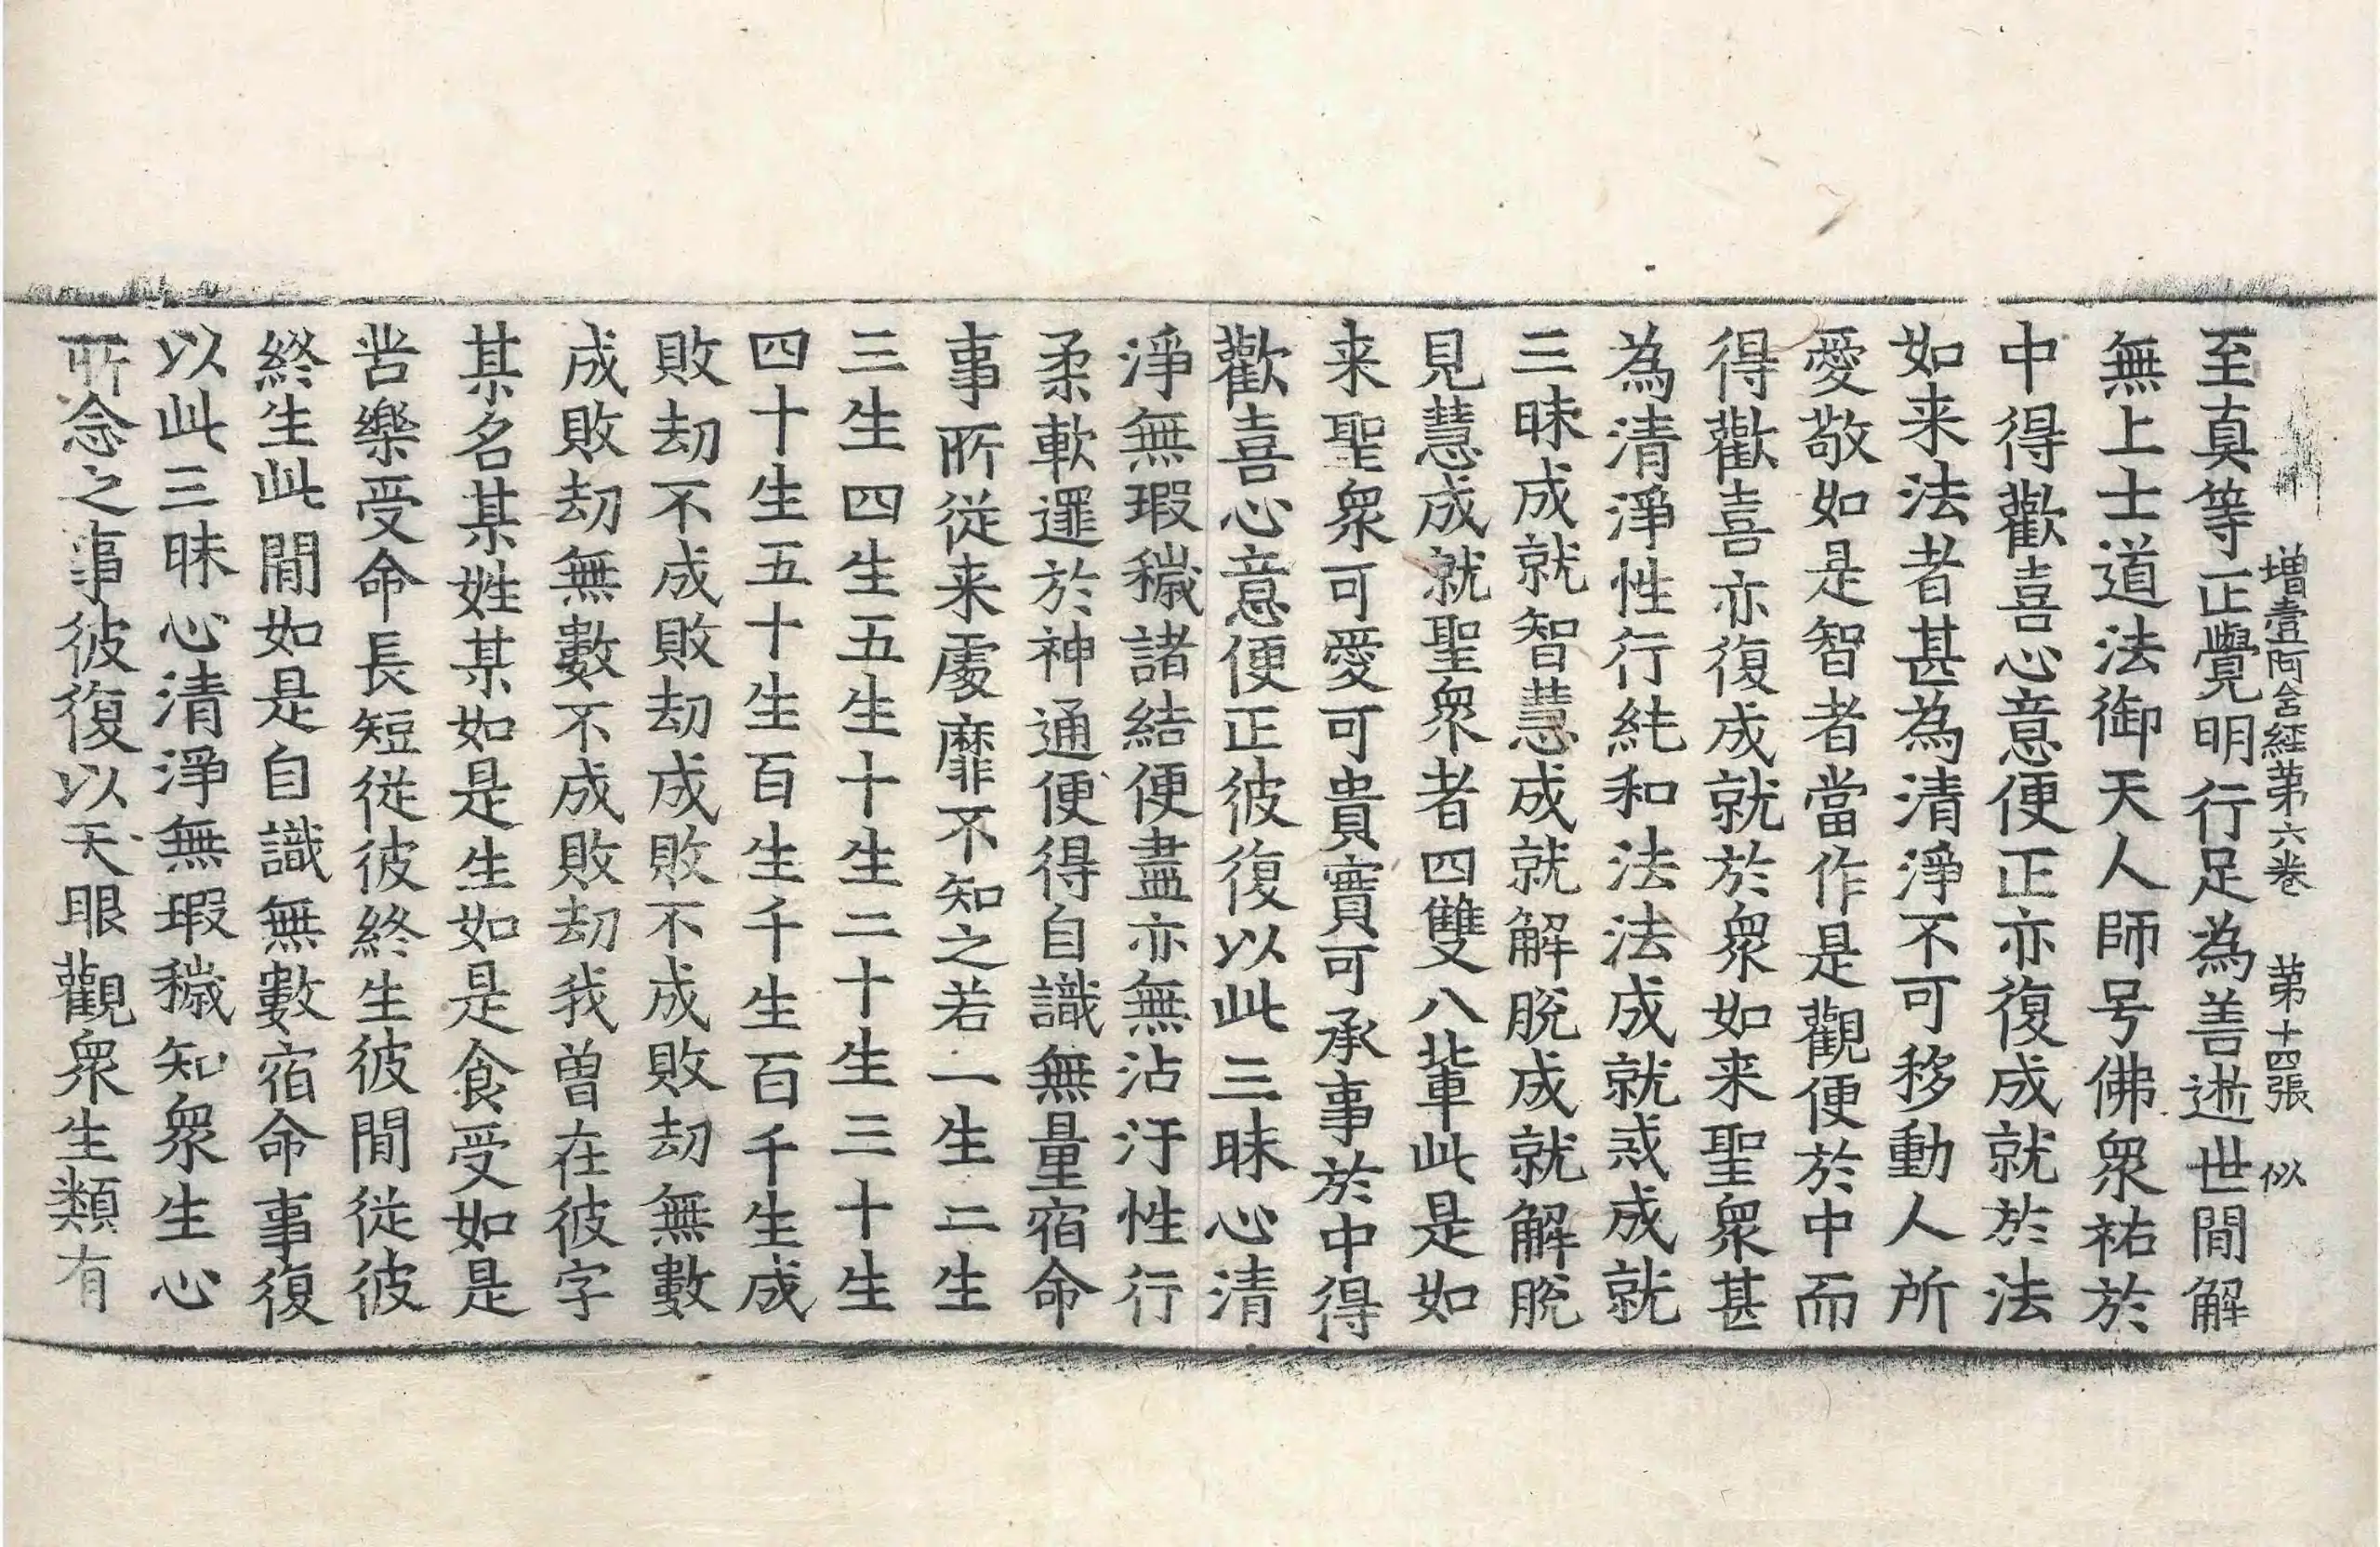 増壹阿含経第六巻　第十四張　似
至真等正覺明行足為善逝世間解
無上士道法御天人師号佛衆祐於
中得歡喜心意便正亦復成就於法
如来法者甚為清淨不可移動人所
愛敬如是智者當作是觀便於中而
得歡喜亦復成就於衆如来聖衆甚
為清淨性行純和法法成就戒成就
三昧成就智慧成就解脫成就解脫
見慧成就聖衆者四雙八輩此是如
来聖衆可愛可貴實可承事於中得
歡喜心意便正彼復以此三昧心清
淨無瑕穢諸結便盡亦無沾汙性行
柔軟逮於神通便得自識無量宿命
事所從来處靡不知之若一生二生
三生四生五生十生二十生三十生
四十生五十生百生千生百千生成
敗劫不成敗劫成敗不成敗劫無數
成敗劫無數不成敗劫我曽在彼字
某名某姓某如是生如是食受如是
苦樂受命長短從彼終生彼間從彼
終生此間如是自識無數宿命事復
以此三昧心清淨無瑕穢知衆生心
所念之事彼復以天眼觀衆生類有